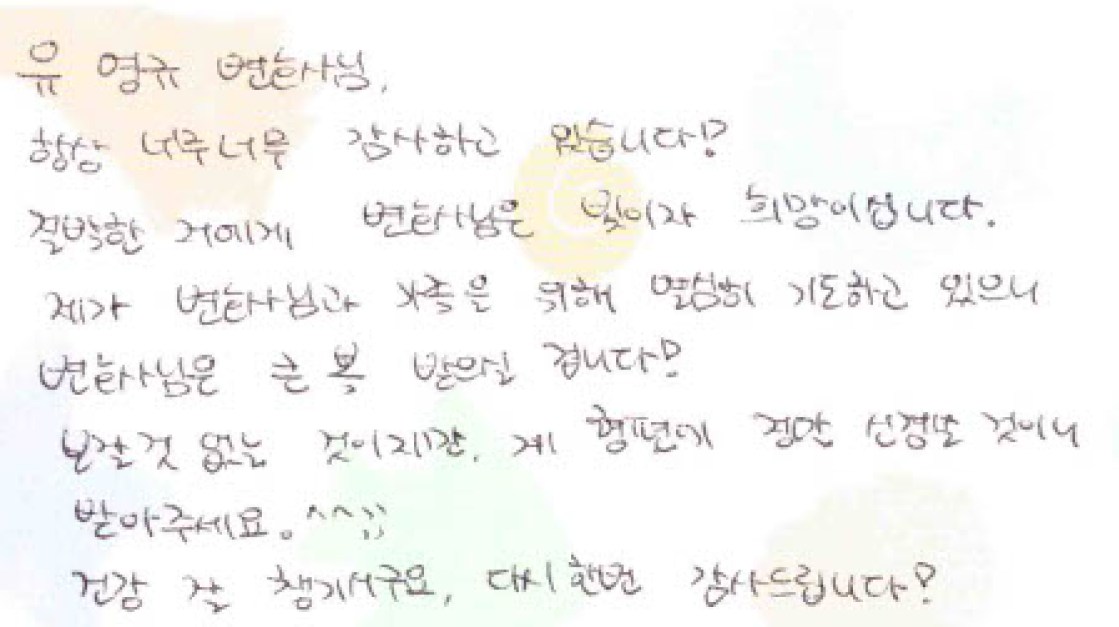 유 영규 변호사님,
항상 너무너무 감사하고 있습니다!
절박한 저에게 변호사님은 빛이자 희망이십니다.
제가 변호사님과 가족을 위해 열심히 기도하고 있으니
변호사님은 큰 복 받으실 겁니다!
보잘 것 없는 것이지만, 제 형편에 정말 신경쓴 것이니
받아주세요. ^^;;
건강 잘 챙기시구요, 다시 한번 감사드립니다!